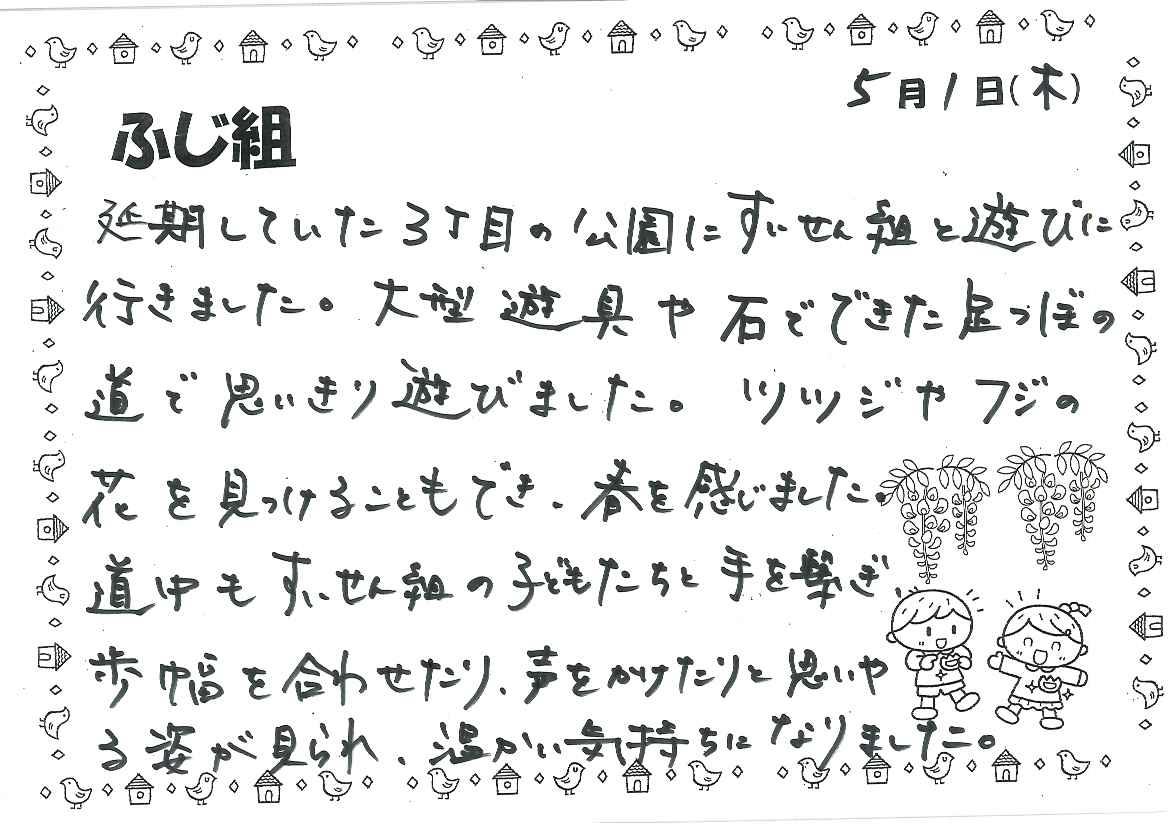 5月1日(木)
ふじ組
延期していた3丁目の公園にすいせん組と遊びに
行きました。大型遊具や石でできた足つぼの
道で思いきり遊びました。ツツジやフジの
花を見つけることもでき、春を感じました。
道中もすいせん組の子どもたちと手を繋ぎ、
歩幅を合わせたり、声をかけたりと思いや
る姿が見られ、温かい気持ちになりました。